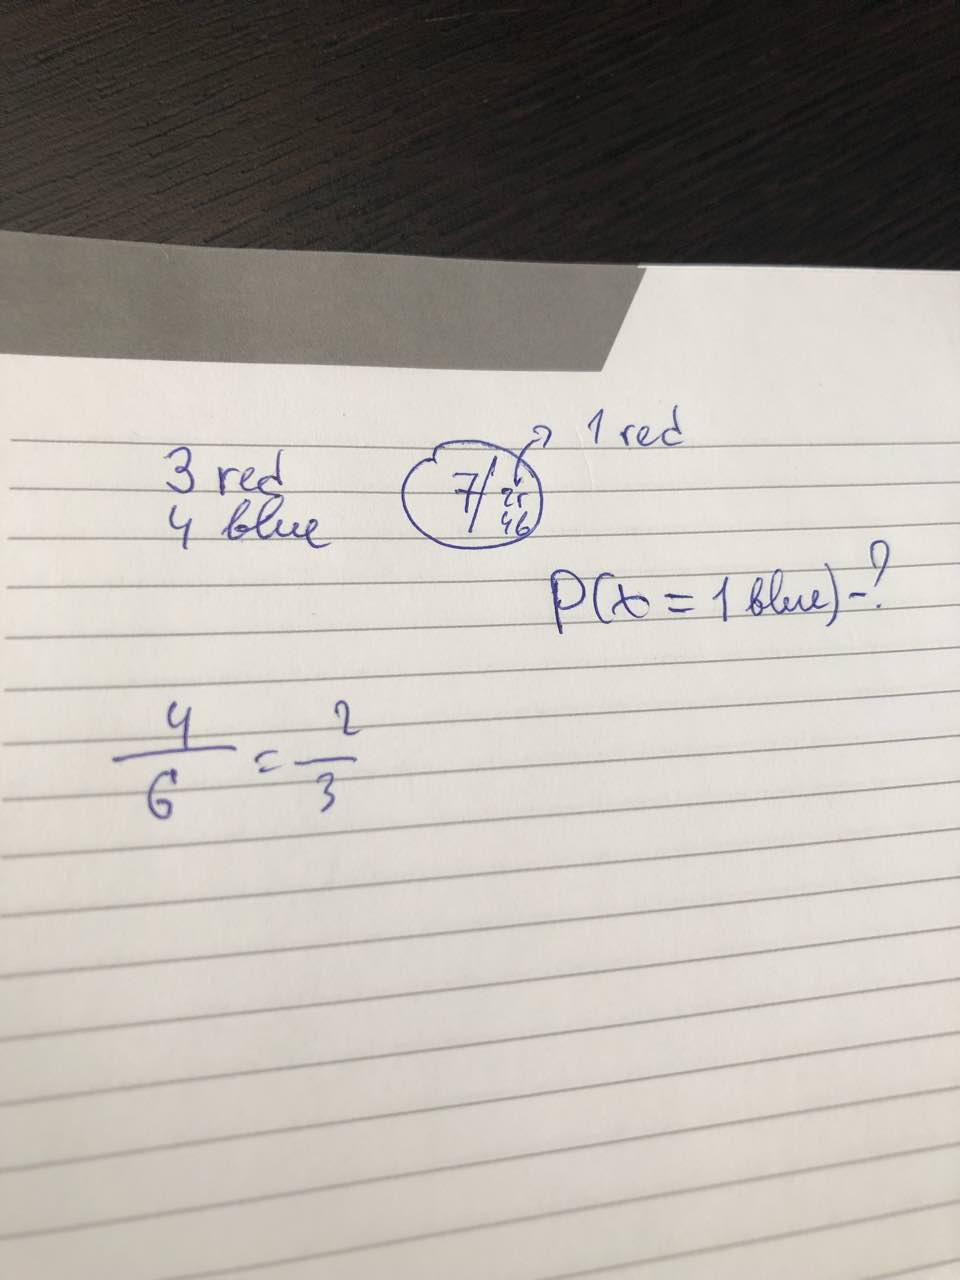 3 red
4 blue
7/
2r
4b
1 red
P(x = 1 blue) - ?
4/6 = 2/3